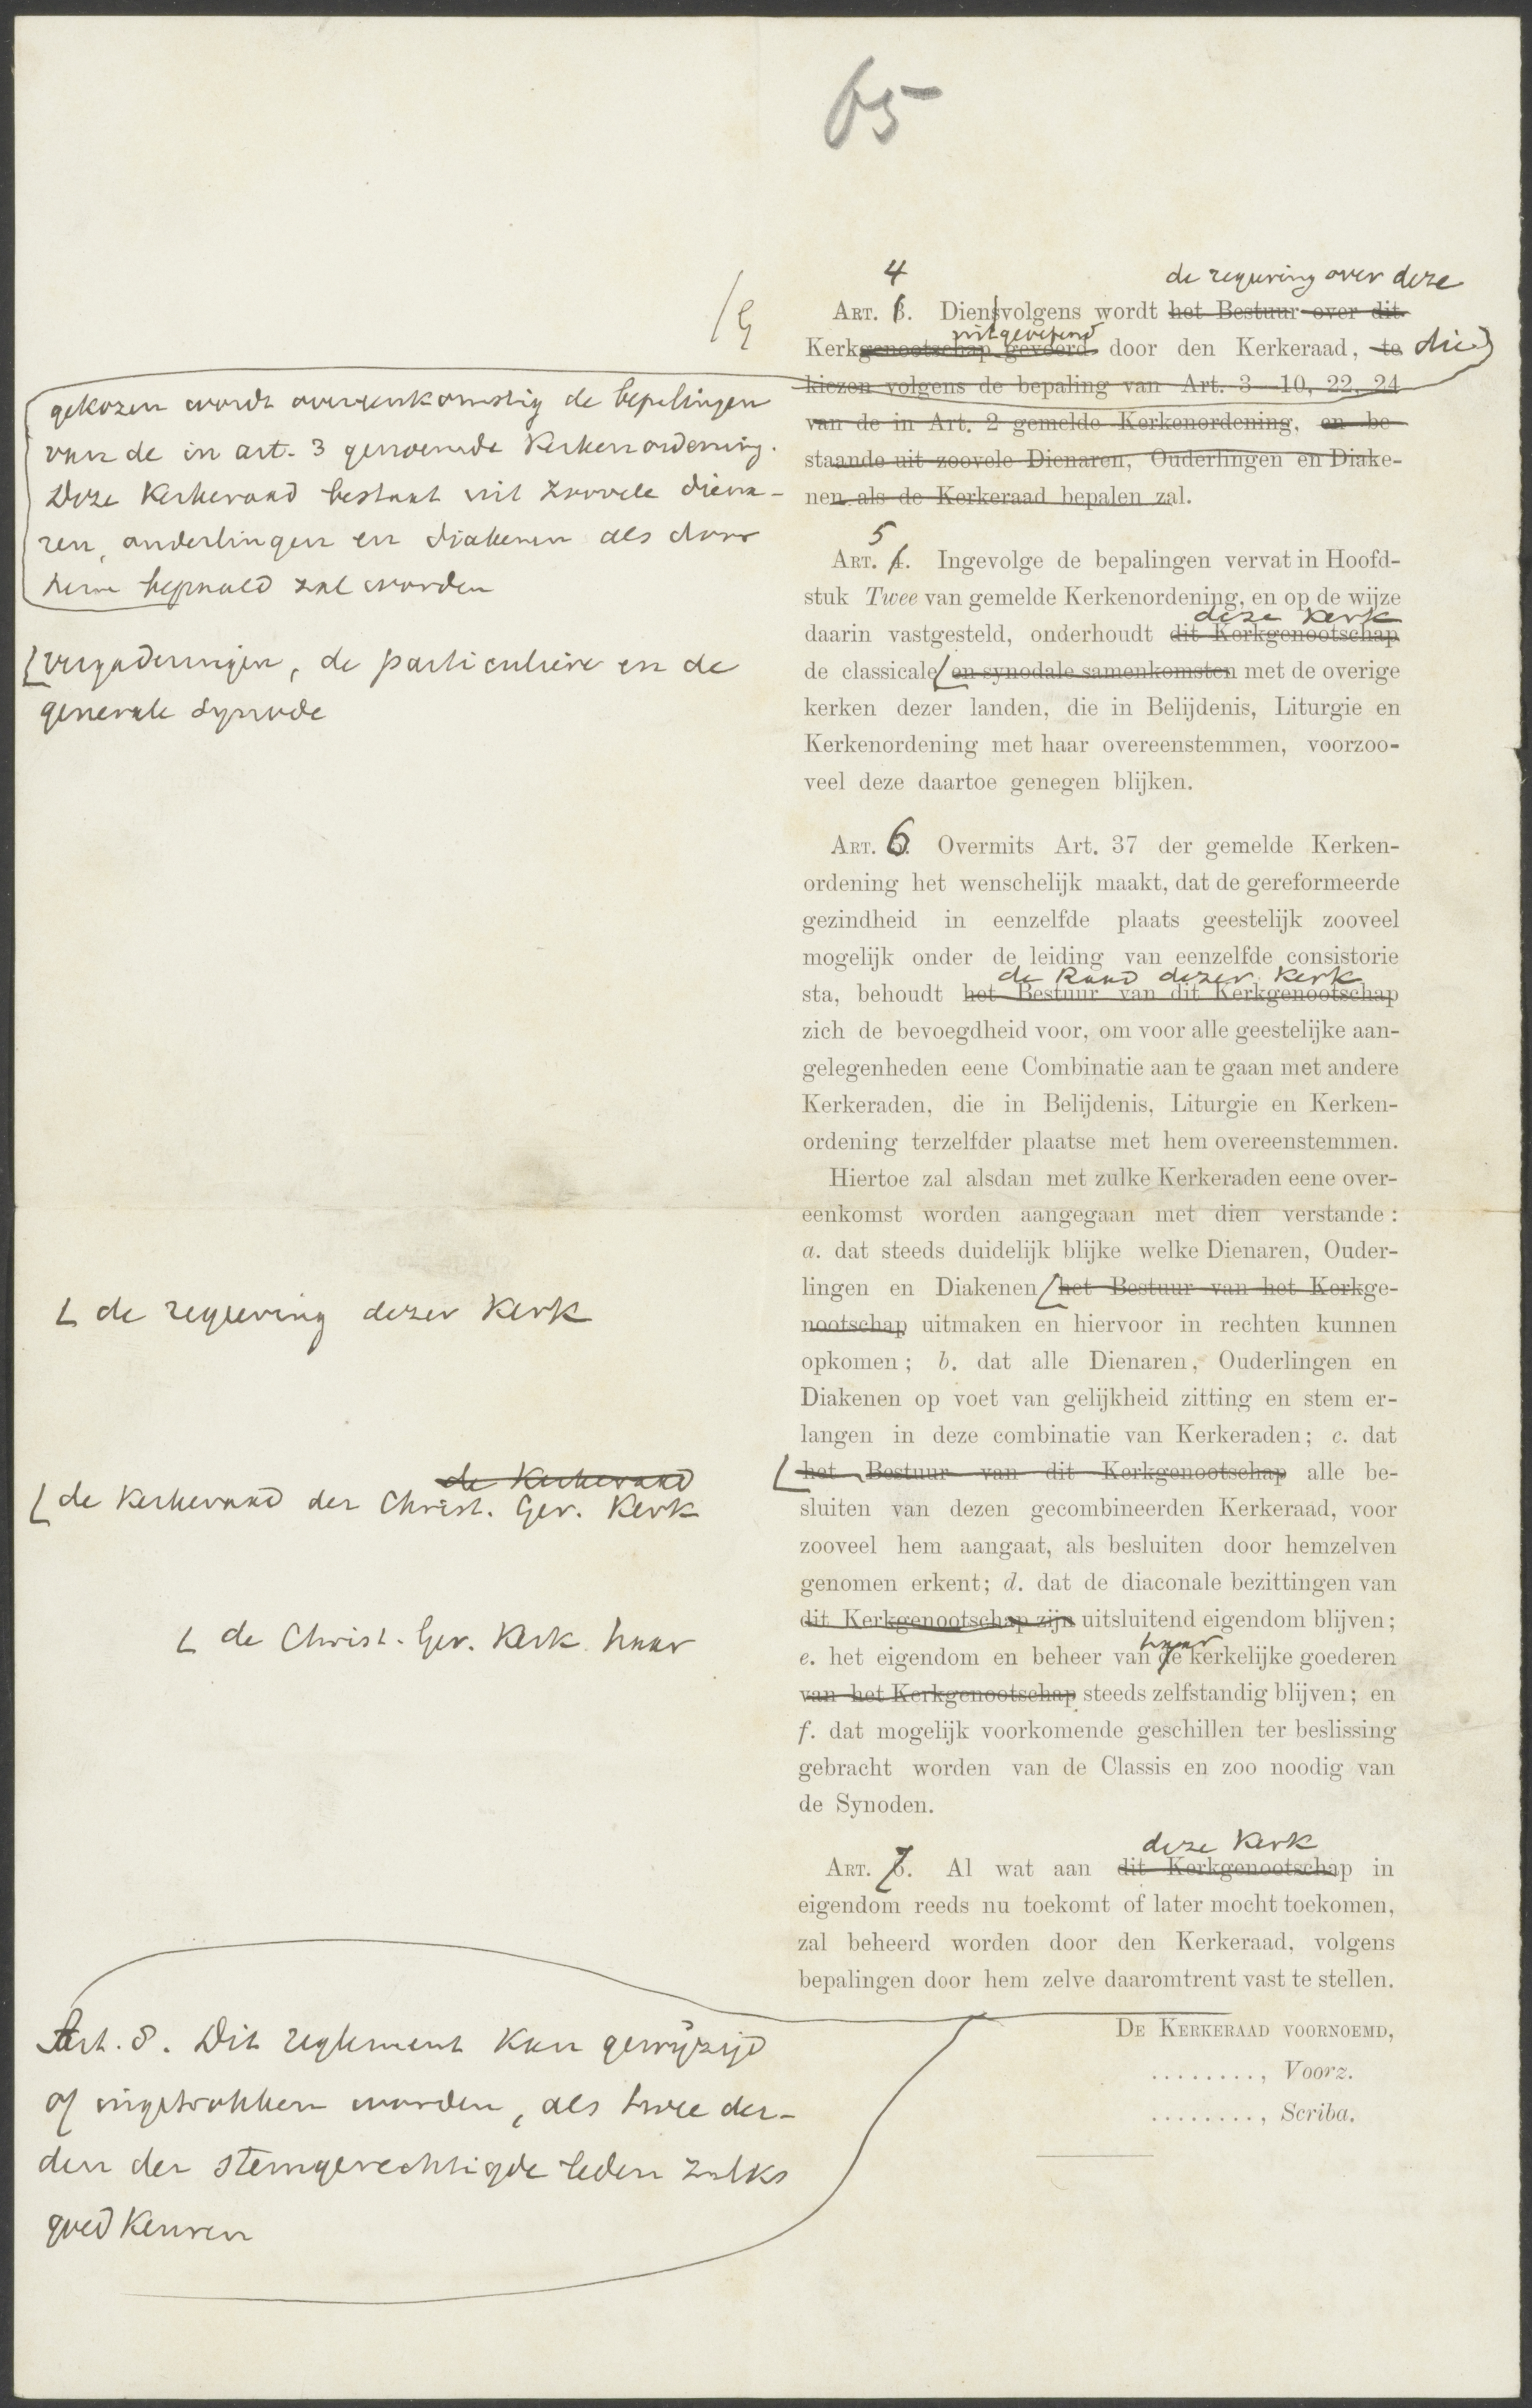 65
4
de regeering over deze
ART. 3. Diensvolgens wordt het Bestuur over dit
uitgeoefend
Kerkgenootschap gevoerd door den Kerkeraad, te die
kiezen volgens de bepaling van Art. 3—10, 22, 24
van de in Art. 2 gemelde Kerkenordening, en be-
staande uit zoovele Dienaren, Ouderlingen en Diake-
nen als de Kerkeraad bepalen zal.
gekozen wordt overeenkomstig de bepalingen
van de in art. 3 genoemde Kerkenordening.
Deze Kerkeraad bestaat uit zoovele diena-
ren, ouderlingen en diakenen als door
hem bepaald zal worden
5
ART. 4. Ingevolge de bepalingen vervat in Hoofd-
stuk Twee van gemelde Kerkenordening, en op de wijze
deze Kerk
daarin vastgesteld, onderhoudt dit Kerkgenootschap
de classicale en synodale samenkomsten met de overige
kerken dezer landen, die in Belijdenis, Liturgie en
Kerkenordening met haar overeenstemmen, voorzoo-
veel deze daartoe genegen blijken.
vergaderingen, de particuliere en de
generale synode
ART. 6. Overmits Art. 37 der gemelde Kerken-
ordening het wenschelijk maakt, dat de gereformeerde
gezindheid in eenzelfde plaats geestelijk zooveel
mogelijk onder de leiding van eenzelfde consistorie
de Raad dezer Kerk
sta, behoudt het Bestuur van dit Kerkgenootschap
zich de bevoegdheid voor, om voor alle geestelijke aan-
gelegenheden eene Combinatie aan te gaan met andere
Kerkeraden, die in Belijdenis, Liturgie en Kerken-
ordening terzelfder plaatse met hem overeenstemmen.
Hiertoe zal alsdan met zulke Kerkeraden eene over-
eenkomst worden aangegaan met dien verstande:
a. dat steeds duidelijk blijke welke Dienaren, Ouder-
lingen en Diakenen het Bestuur van het Kerkge-
nootschap uitmaken en hiervoor in rechten kunnen
opkomen; b. dat alle Dienaren, Ouderlingen en
Diakenen op voet van gelijkheid zitting en stem er-
langen in deze combinatie van Kerkeraden; c. dat
het Bestuur van dit Kerkgenootschap alle be-
sluiten van dezen gecombineerden Kerkeraad, voor
zooveel hem aangaat, als besluiten door hemzelven
genomen erkent; d. dat de diaconale bezittingen van
dit Kerkgenootschap zijn uitsluitend eigendom blijven;
haar
e. het eigendom en beheer van de kerkelijke goederen
van het Kerkgenootschap steeds zelfstandig blijven; en
f. dat mogelijk voorkomende geschillen ter beslissing
gebracht worden van de Classis en zoo noodig van
de Synoden.
de regeering dezer Kerk
de Kerkeraad
de Kerkeraad der Christ. Ger. Kerk
de Christ. Ger. Kerk haar
deze Kerk
ART. 7. Al wat aan dit Kerkgenootschap in
eigendom reeds nu toekomt of later mocht toekomen,
zal beheerd worden door den Kerkeraad, volgens
bepalingen door hem zelve daaromtrent vast te stellen.
Art. 8. Dit reglement kan gewijzigd
of ingetrokken worden, als twee der-
den der stemgerechtigde leden zulks
goedkeuren
DE KERKERAAD VOORNOEMD,
........, Voorz.
........, Scriba.